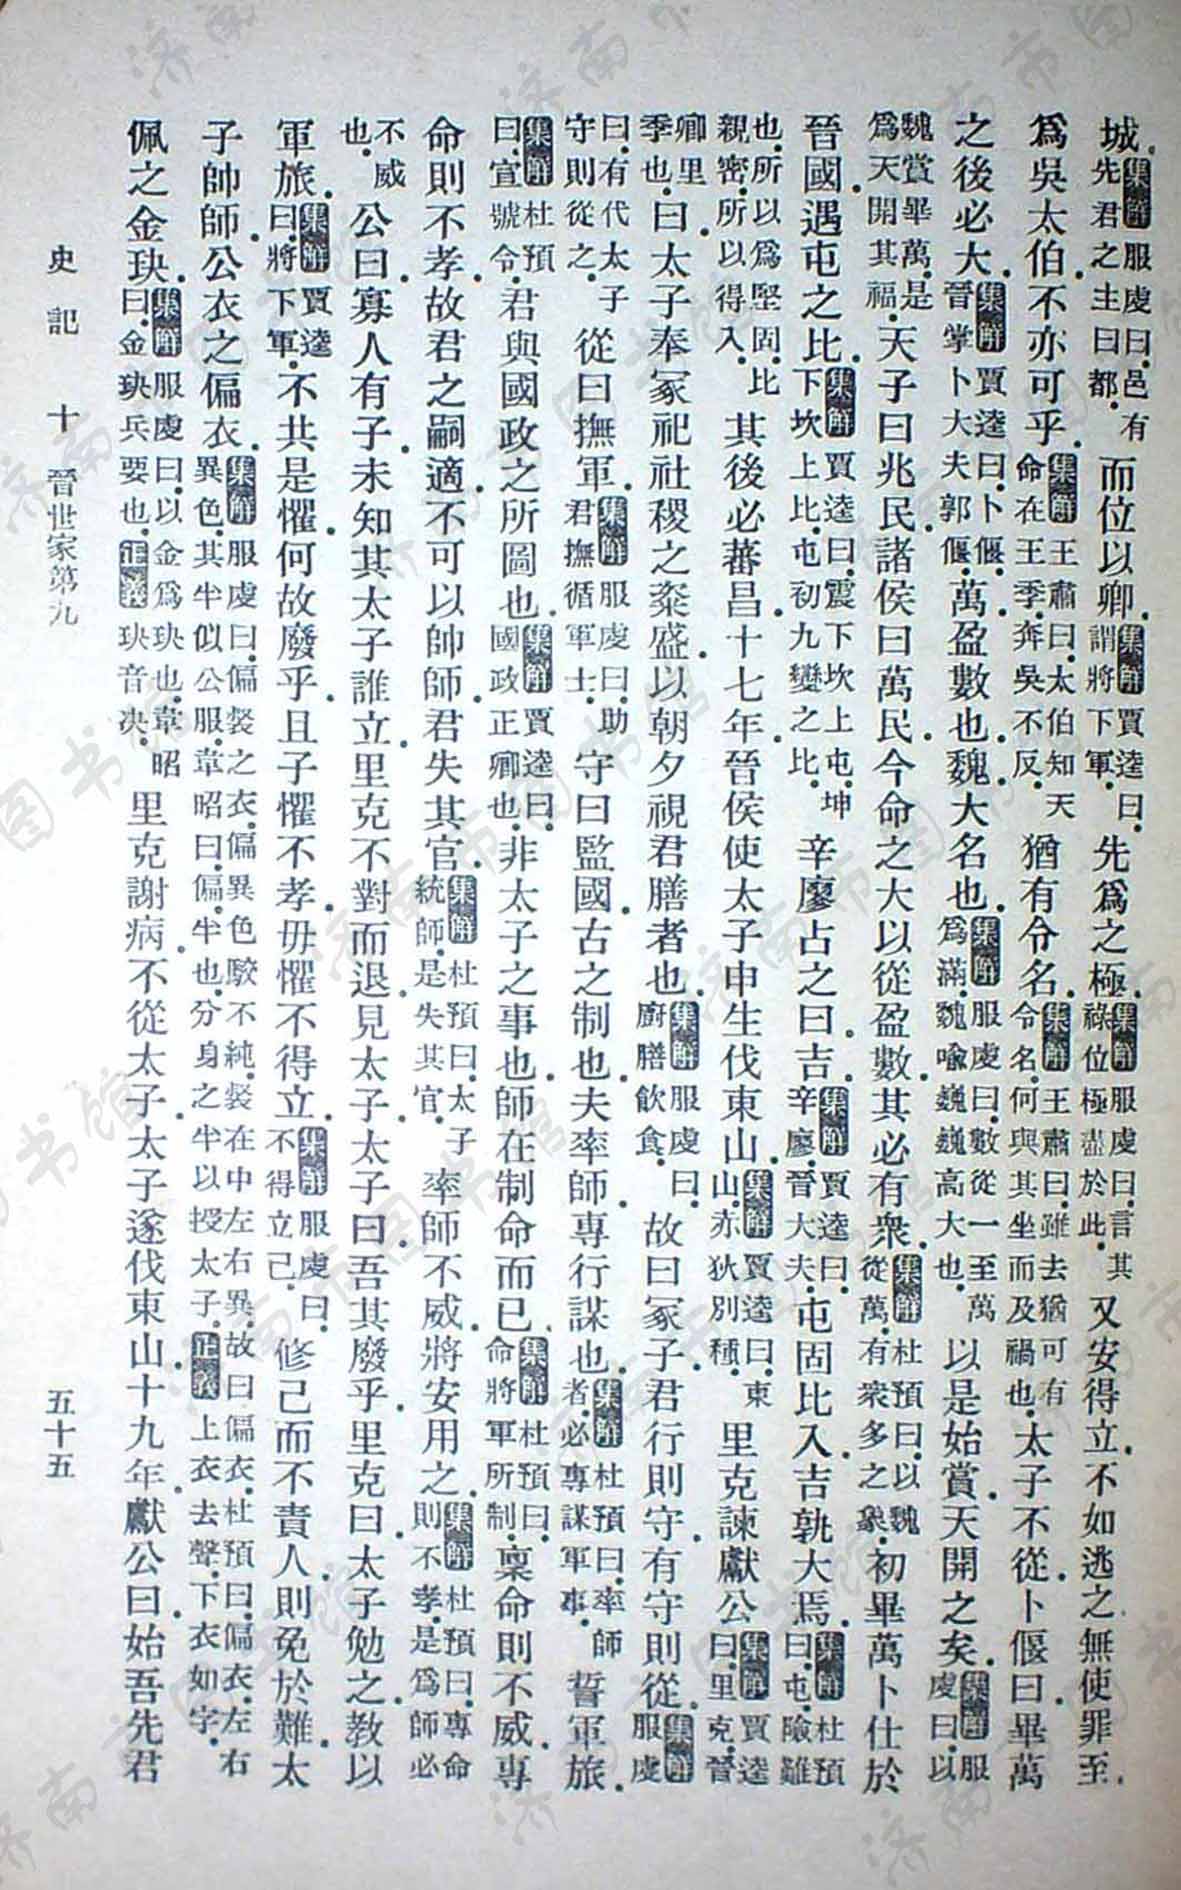 城集解服虔曰邑有先君之主曰都而位以卿集解賈逵曰謂將下軍先爲之極集解服虔曰言其祿位極盡於此又安得立不如逃之無使罪至
爲吳太伯不亦可乎集解王肅曰太伯知天命在王季奔吳不反猶有令名集解王肅曰雖去猶可有令名何與其坐而及禍也太子不從卜偃曰畢萬
之後必大集解賈逵曰卜偃晉掌卜大夫郭偃萬盈數也魏大名也集解服虔曰數從一至萬爲滿魏喻巍巍高大也以是始賞天開之矣集解服虔曰以
魏賞畢萬是爲天開其福天子曰兆民諸侯曰萬民今命之大以從盈數其必有衆集解杜預曰以魏從萬有衆多之象初畢萬卜仕於
晉國遇屯之比集解賈逵曰震下坎上屯坤下坎上比屯初九變之比辛廖占之曰吉集解賈逵曰辛廖晉大夫屯固比入吉孰大焉集解杜預曰屯險難
也所以爲堅固比親密所以得入其後必蕃昌十七年晉侯使太子申生伐東山集解賈逵曰東山赤狄別種里克諫獻公集解賈逵曰里克晉
卿里季也曰太子奉冢祀社稷之粢盛以朝夕視君膳者也集解服虔曰廚膳飲食故曰冢子君行則守有守則從集解服虔
曰有代太子守則從之從曰撫軍集解服虔曰助君撫循軍士守曰監國古之制也夫率師專行謀也集解杜預曰率師者必專謀軍事誓軍旅
集解杜預曰宣號令君與國政之所圖也集解賈逵曰國政正卿也非太子之事也師在制命而已集解杜預曰命將軍所制稟命則不威專
命則不孝故君之嗣適不可以帥師君失其官集解杜預曰太子統師是失其官率師不威將安用之集解杜預曰專命則不孝是爲師必
不威也公曰寡人有子未知其太子誰立里克不對而退見太子太子曰吾其廢乎里克曰太子勉之教以
軍旅集解賈逵曰將下軍不共是懼何故廢乎且子懼不孝毋懼不得立集解服虔曰不得立己修己而不責人則免於難太
子帥師公衣之偏衣集解服虔曰偏裻之衣偏異色駮不純裻在中左右異故曰偏衣杜預曰偏衣左右異色其半似公服韋昭曰偏半也分身之半以授太子正義上衣去聲下衣如字
佩之金玦集解服虔曰以金爲玦也韋昭曰金玦兵要也正義玦音决里克謝病不從太子太子遂伐東山十九年獻公曰始吾先君
史記 十 晉世家第九 五十五